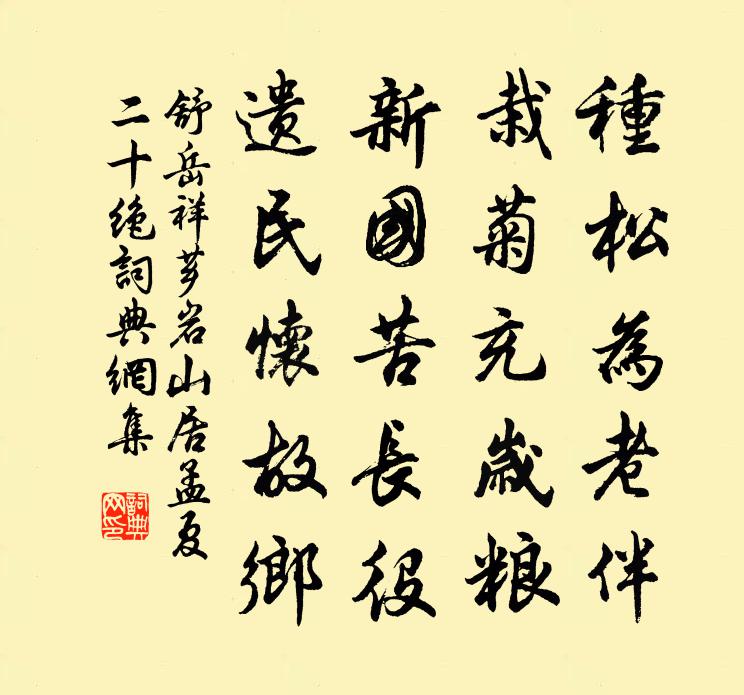 種松為老伴
栽菊充歲粮
新國苦長役
遺民懷故鄉
舒岳祥芗岩山居孟夏
二十絶詞典網集
詞典網印